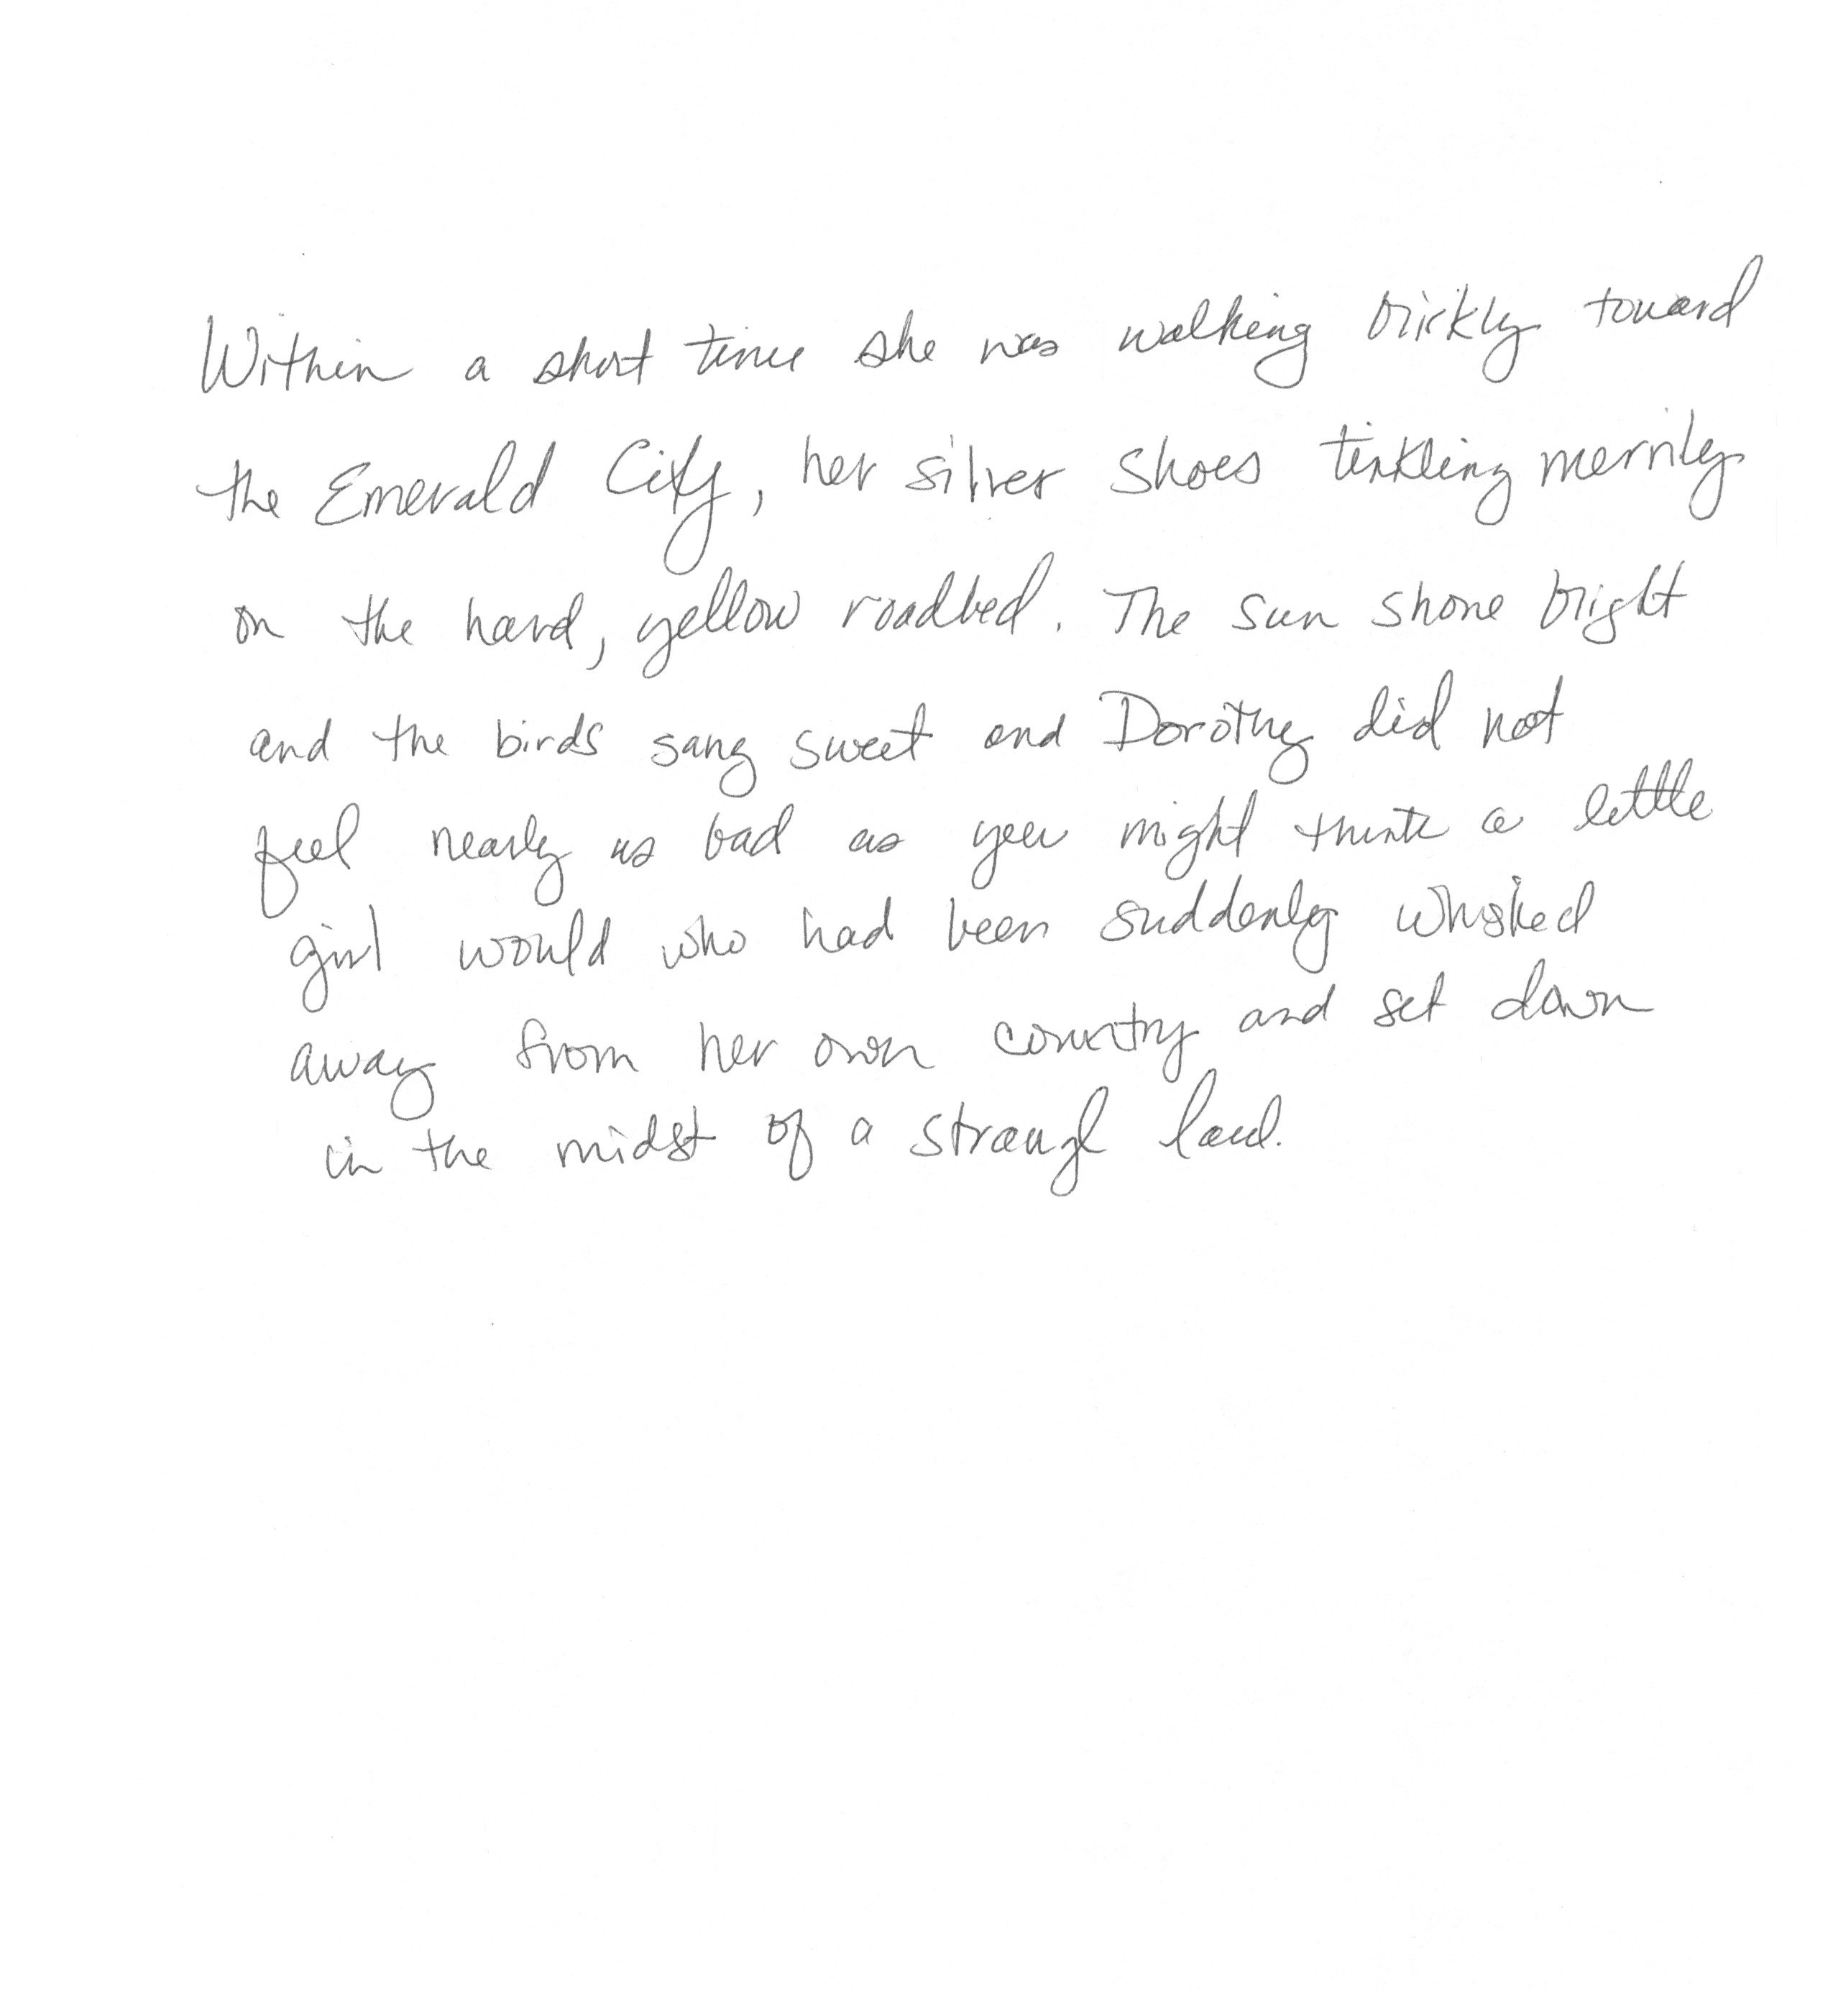 Within a short time she was walking briskly toward
the Emerald City, her silver shoes tinkling merrily
on the hard, yellow roadbed. The sun shone bright
and the birds sang sweet and Dorothy did not
feel nearly as bad as you might think a little
girl would who had been suddenly whisked
away from her own country and set down
in the midst of a strange land.